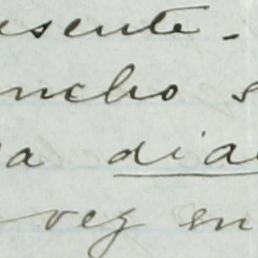 esente.
ncho s
a dia
vez en